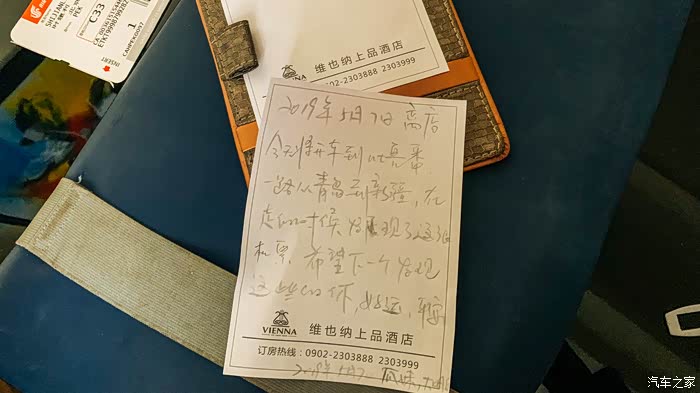 C33
PEK
1
INSERT
VIENNA
维也纳上品酒店
0902-2303888 2303999
2019年5月7日 离店
今天将开车到吐鲁番
一路从青岛到新疆，在
走的时候 发现了这张
机票，希望下一个发现
这些的你，好运，平安
VIENNA
维也纳上品酒店
订房热线：0902-2303888 2303999
汽车之家